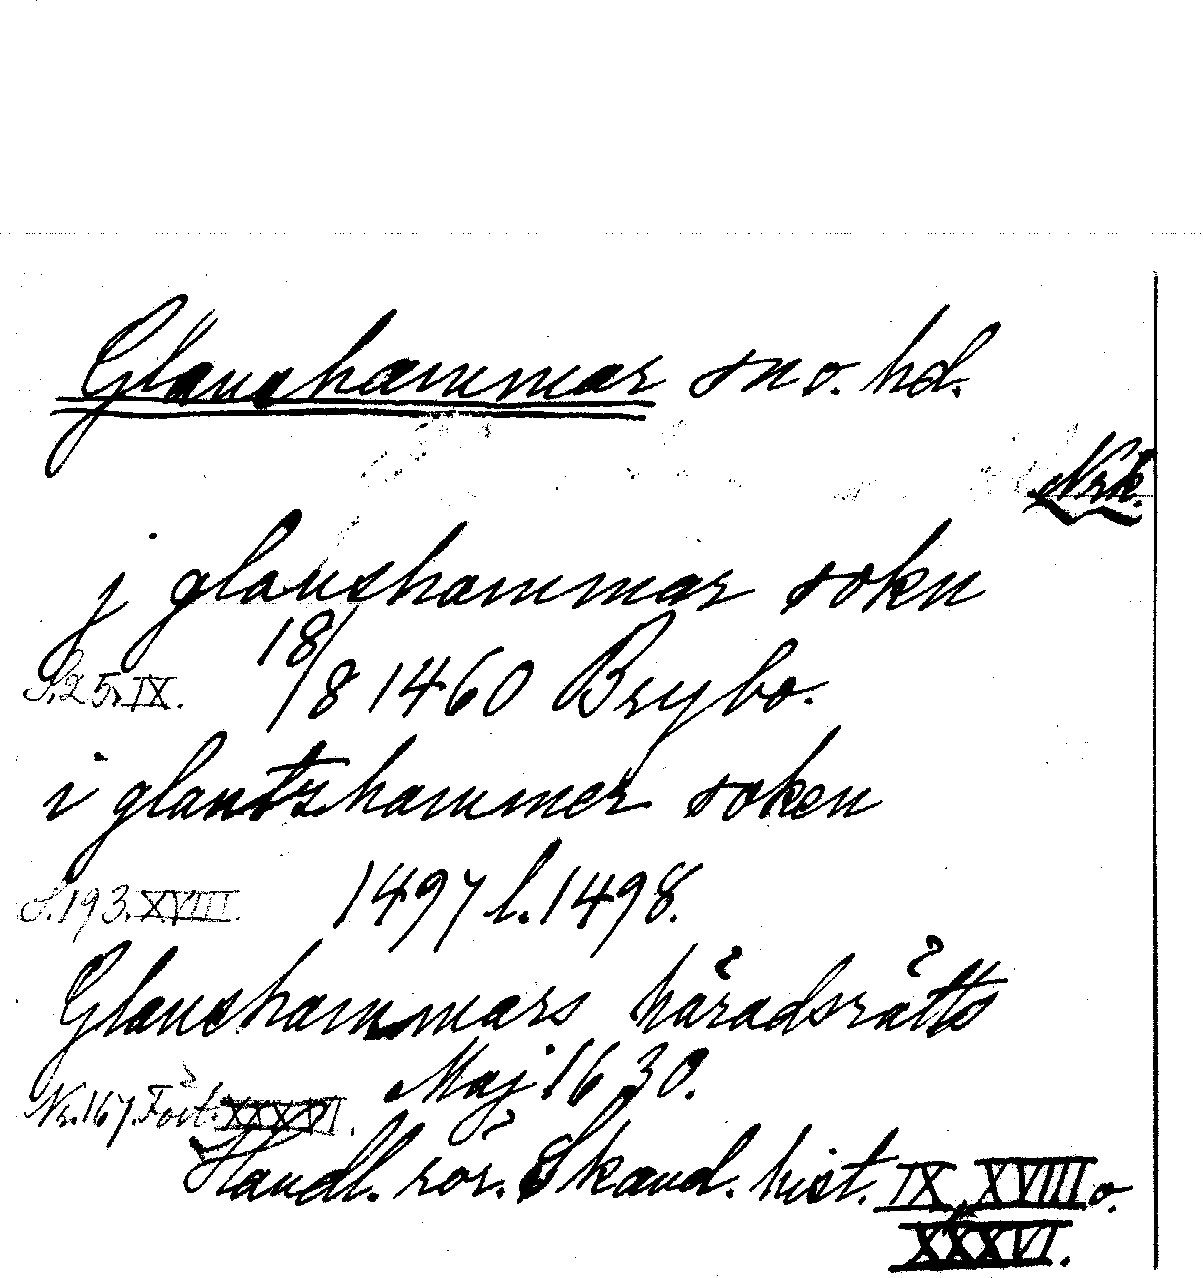 Glanshammar sn o. hd.
Nrk.
j glanshammar sokn
S. 25. IX. 18/8 1460 Brybo.
i glantzhammer soken
S. 193. XVIII. 1497 l. 1498.
Glanshammars häradsrätts
Nr. 167. Fört. XXXVI. Maj 1630.
Handl. rör. Skand. hist. IX, XVIII o.
XXXVI.